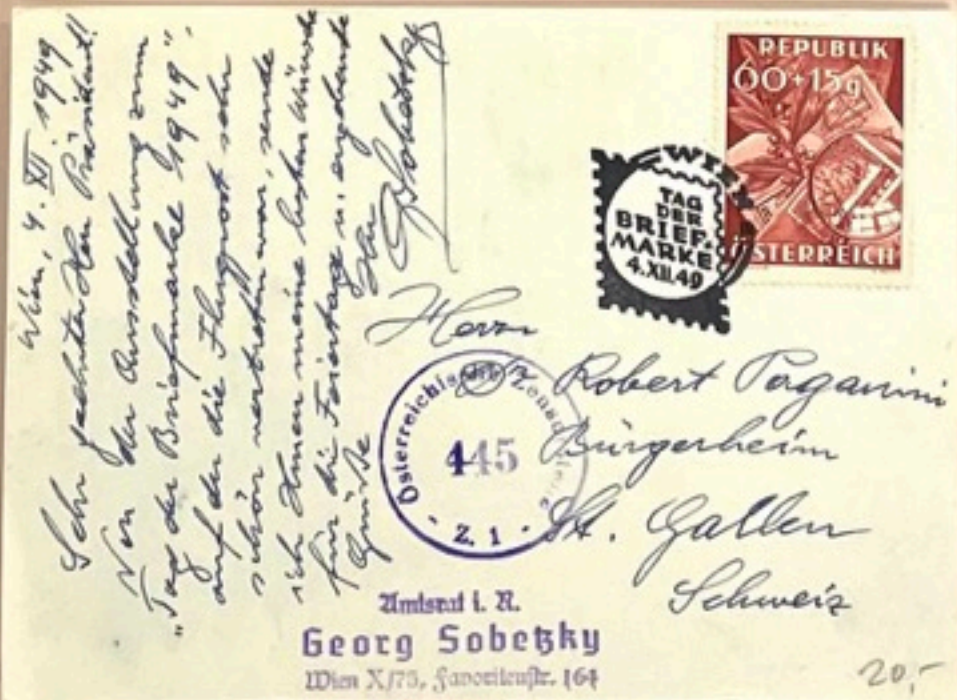 Wien, 4. XII. 1949
Sehr geehrter Herr Präsident!
Von der Ausstellung zum
"Tag der Briefmarke 1949",
auf der die Flugpost sehr
schön vertreten war, sende
ich Ihnen meine besten Wünsche
für die Feiertage u. ergebenste
Grüße
Ihr
GSobetzky
REPUBLIK
60+15g
ÖSTERREICH
WIEN
TAG
DER
BRIEF-
MARKE
4.XII.49
Herrn
Robert Paganini
Bürgerheim
St. Gallen
Schweiz
Österreichische Zensurstelle
445
- Z. 1 -
Amtsrat i. R.
Georg Sobetzky
Wien X/75, Favoritenstr. 164
20,-